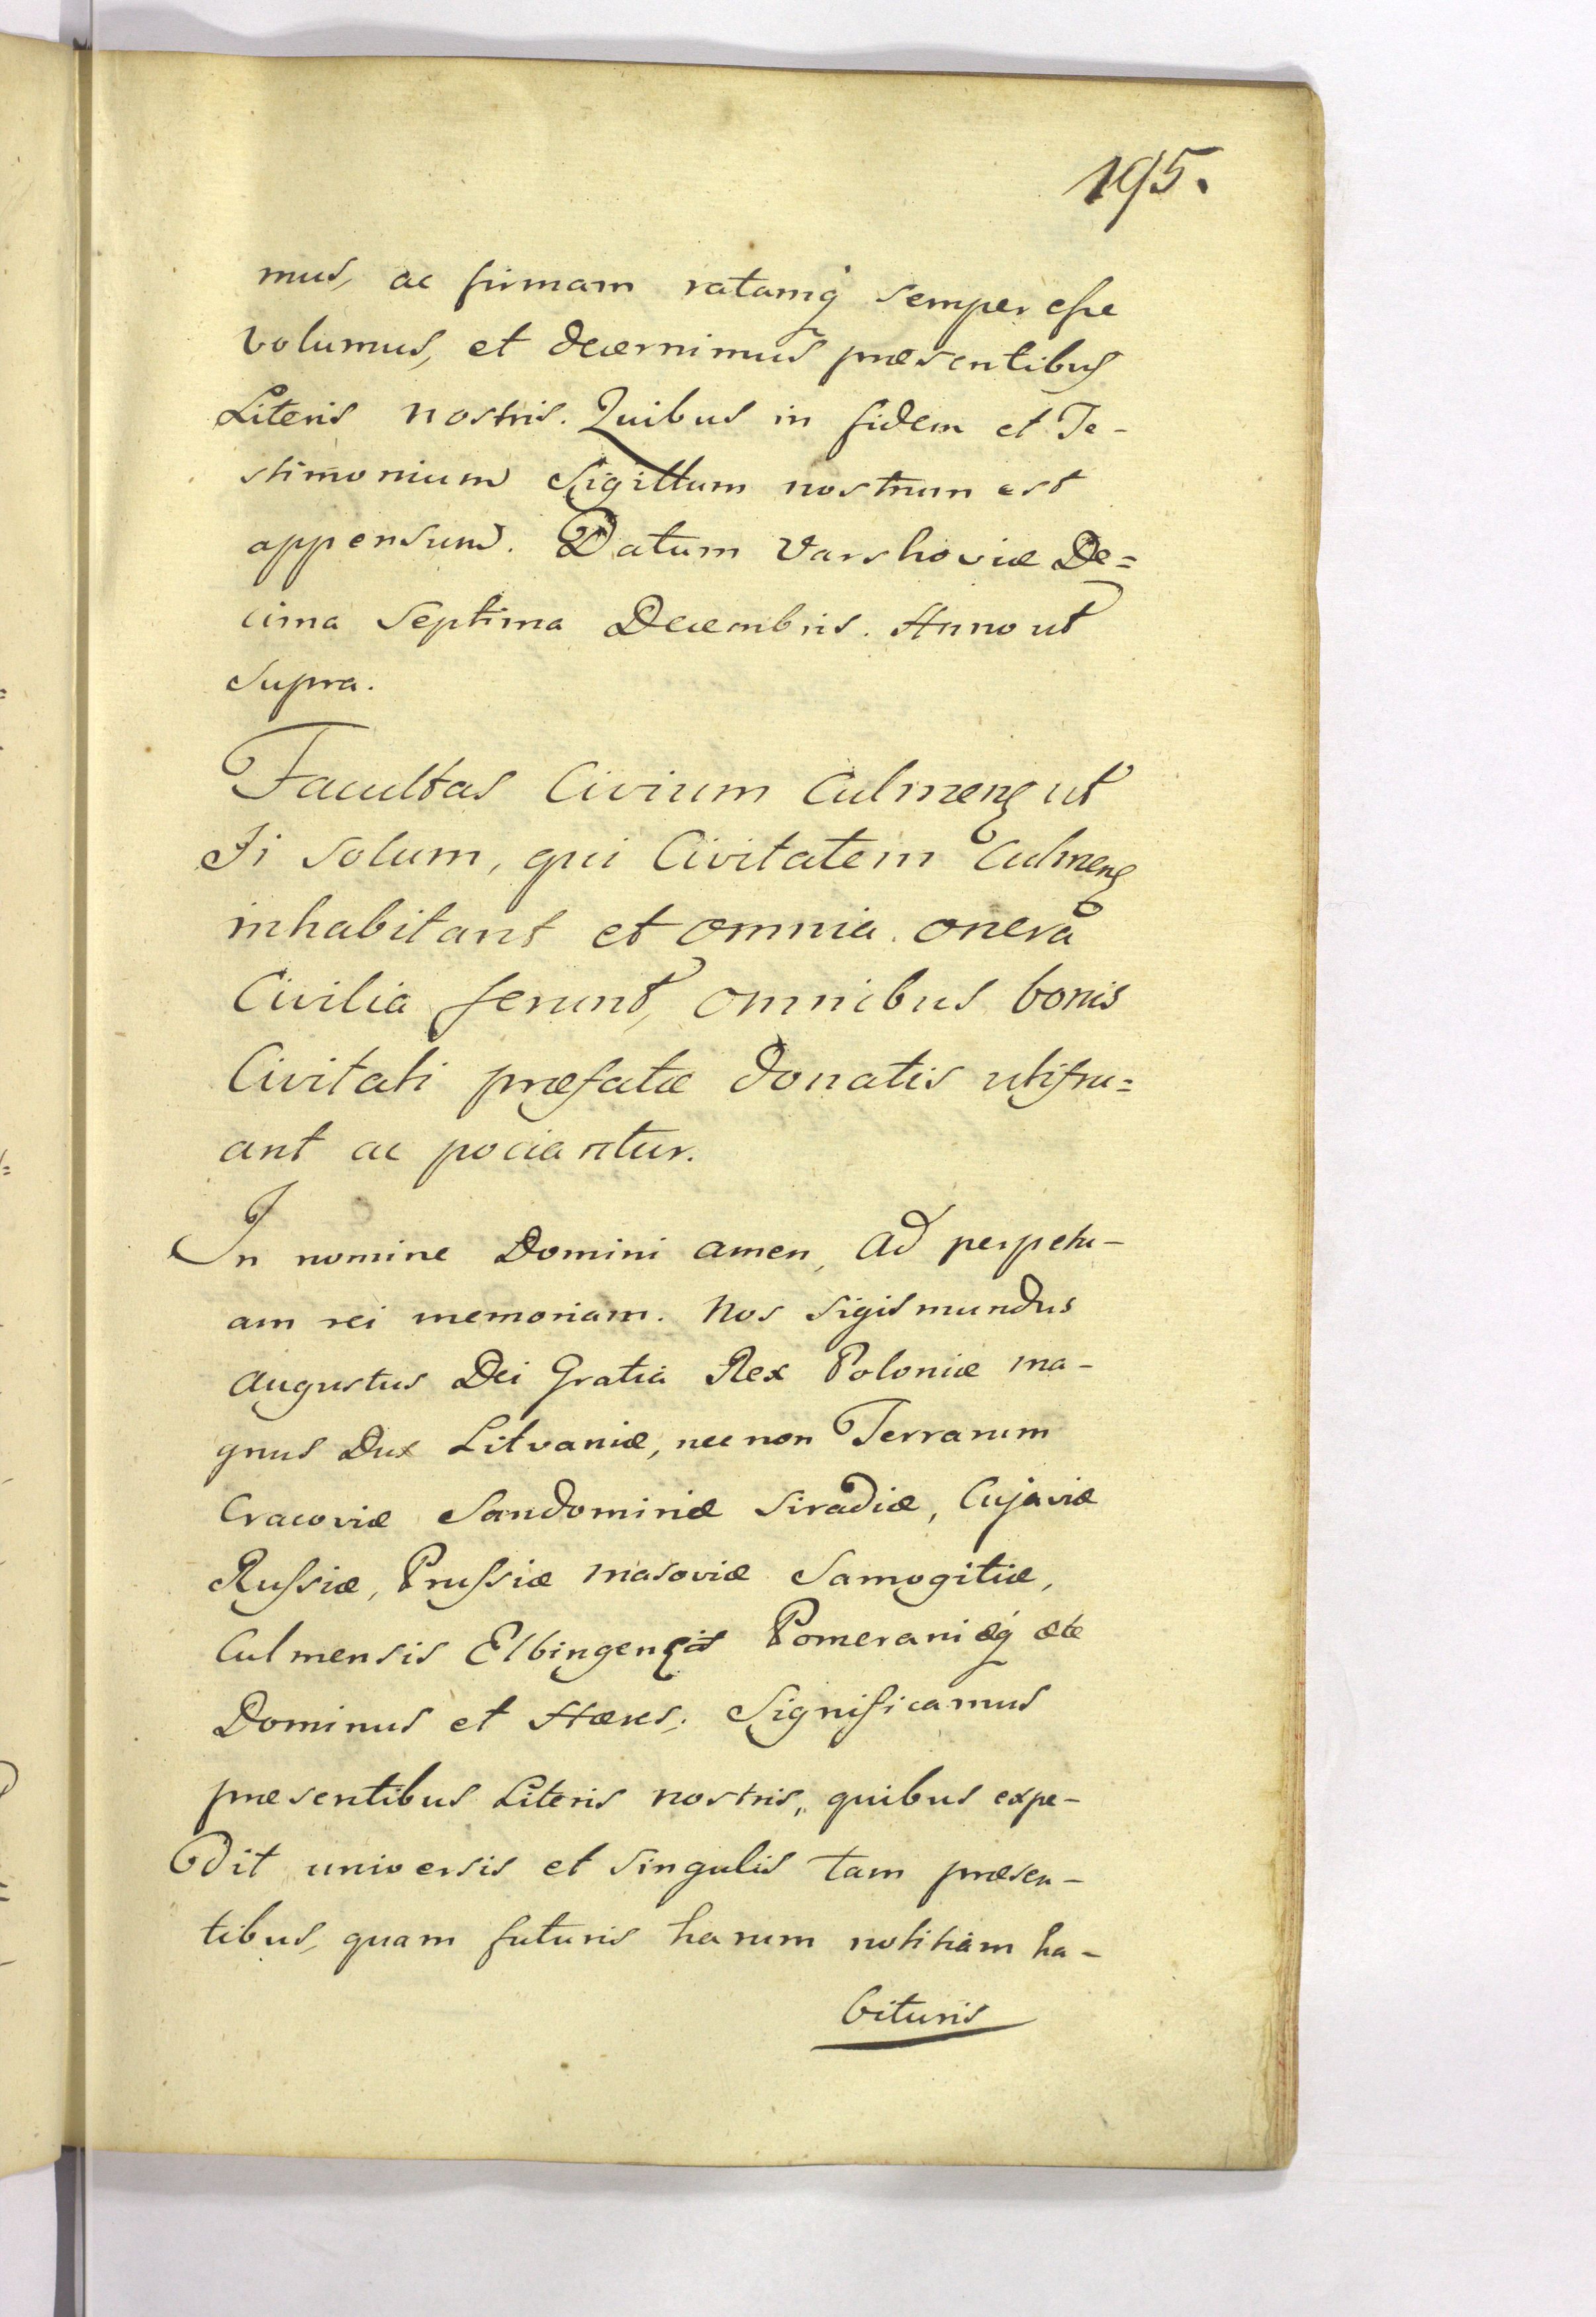 195.
mus, ac firmam ratamq́ semper eſse
volumus, et decernimus præsentibus
Literis nostris. Quibus in fidem et Te-
stimonium Sigillum nostrum est
appensum. Datum Varshoviæ De=
cima Septima Decembris. Anno ut
supra.
Facultas Civium Culmens ut
Ii solum, qui Civitatem Culmens
inhabitant et omnia onera
Civilia ferunt, omnibus bonis
Civitati præfatæ donatis utifru=
ant ac pociantur.
In nomine Domini amen, Ad perpetu-
am rei memoriam. Nos Sigismundus
Augustus Dei Gratia Rex Poloniæ ma-
gnus Dux Litvaniæ, nec non Terrarum
Cracoviæ Sandomiriæ Siradiæ, Cujaviæ
Ruſsiæ, Pruſsiæ Masoviæ Samogitiæ,
Culmensis Elbingensis Pomeraniæq́ etc
Dominus et Hæres. Significamus
præsentibus Literis nostris, quibus expe-
dit universis et singulis tam præsen-
tibus, quam futuris harum notitiam ha-
bituris